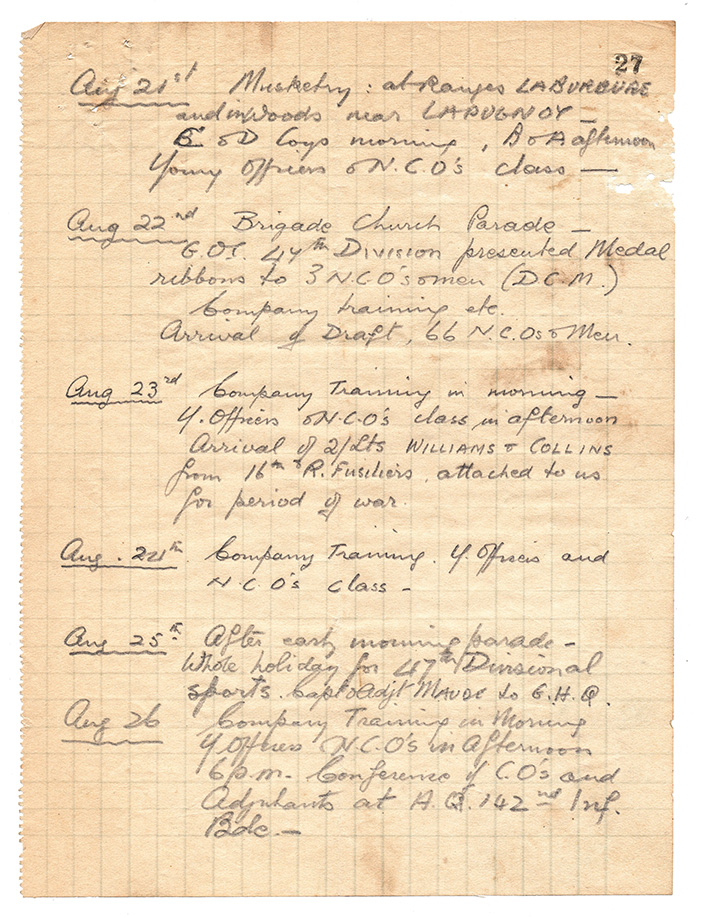 27
Aug 21st Musketry: at Ranges LABURBURE
and in woods near LAPUGNOY —
& D Coys morning, B & A afternoon
Young Officers & N.C.O's class —
Aug 22nd Brigade Church Parade —
G.O.C. 47th Division presented Medal
ribbons to 3 N.C.O's & men (D.C.M.)
Company training etc.
Arrival of Draft, 66 N.C.Os & Men.
Aug 23rd Company Training in morning —
Y. Officers & N.C.O's class in afternoon
Arrival of 2/Lts WILLIAMS & COLLINS
from 16th R. Fusiliers, attached to us
for period of war.
Aug. 24th Company Training. Y. Officers and
N.C.O's Class -
Aug 25th After early morning parade -
Whole holiday for 47th Divisional
sports. Capt & Adjt MAUDE to G.H.Q.
Aug 26 Company Training in Morning
Y. Officers N.C.O's in Afternoon
6 p.m. Conference of C.O's and
Adjutants at 142nd Inf.
Bde. —